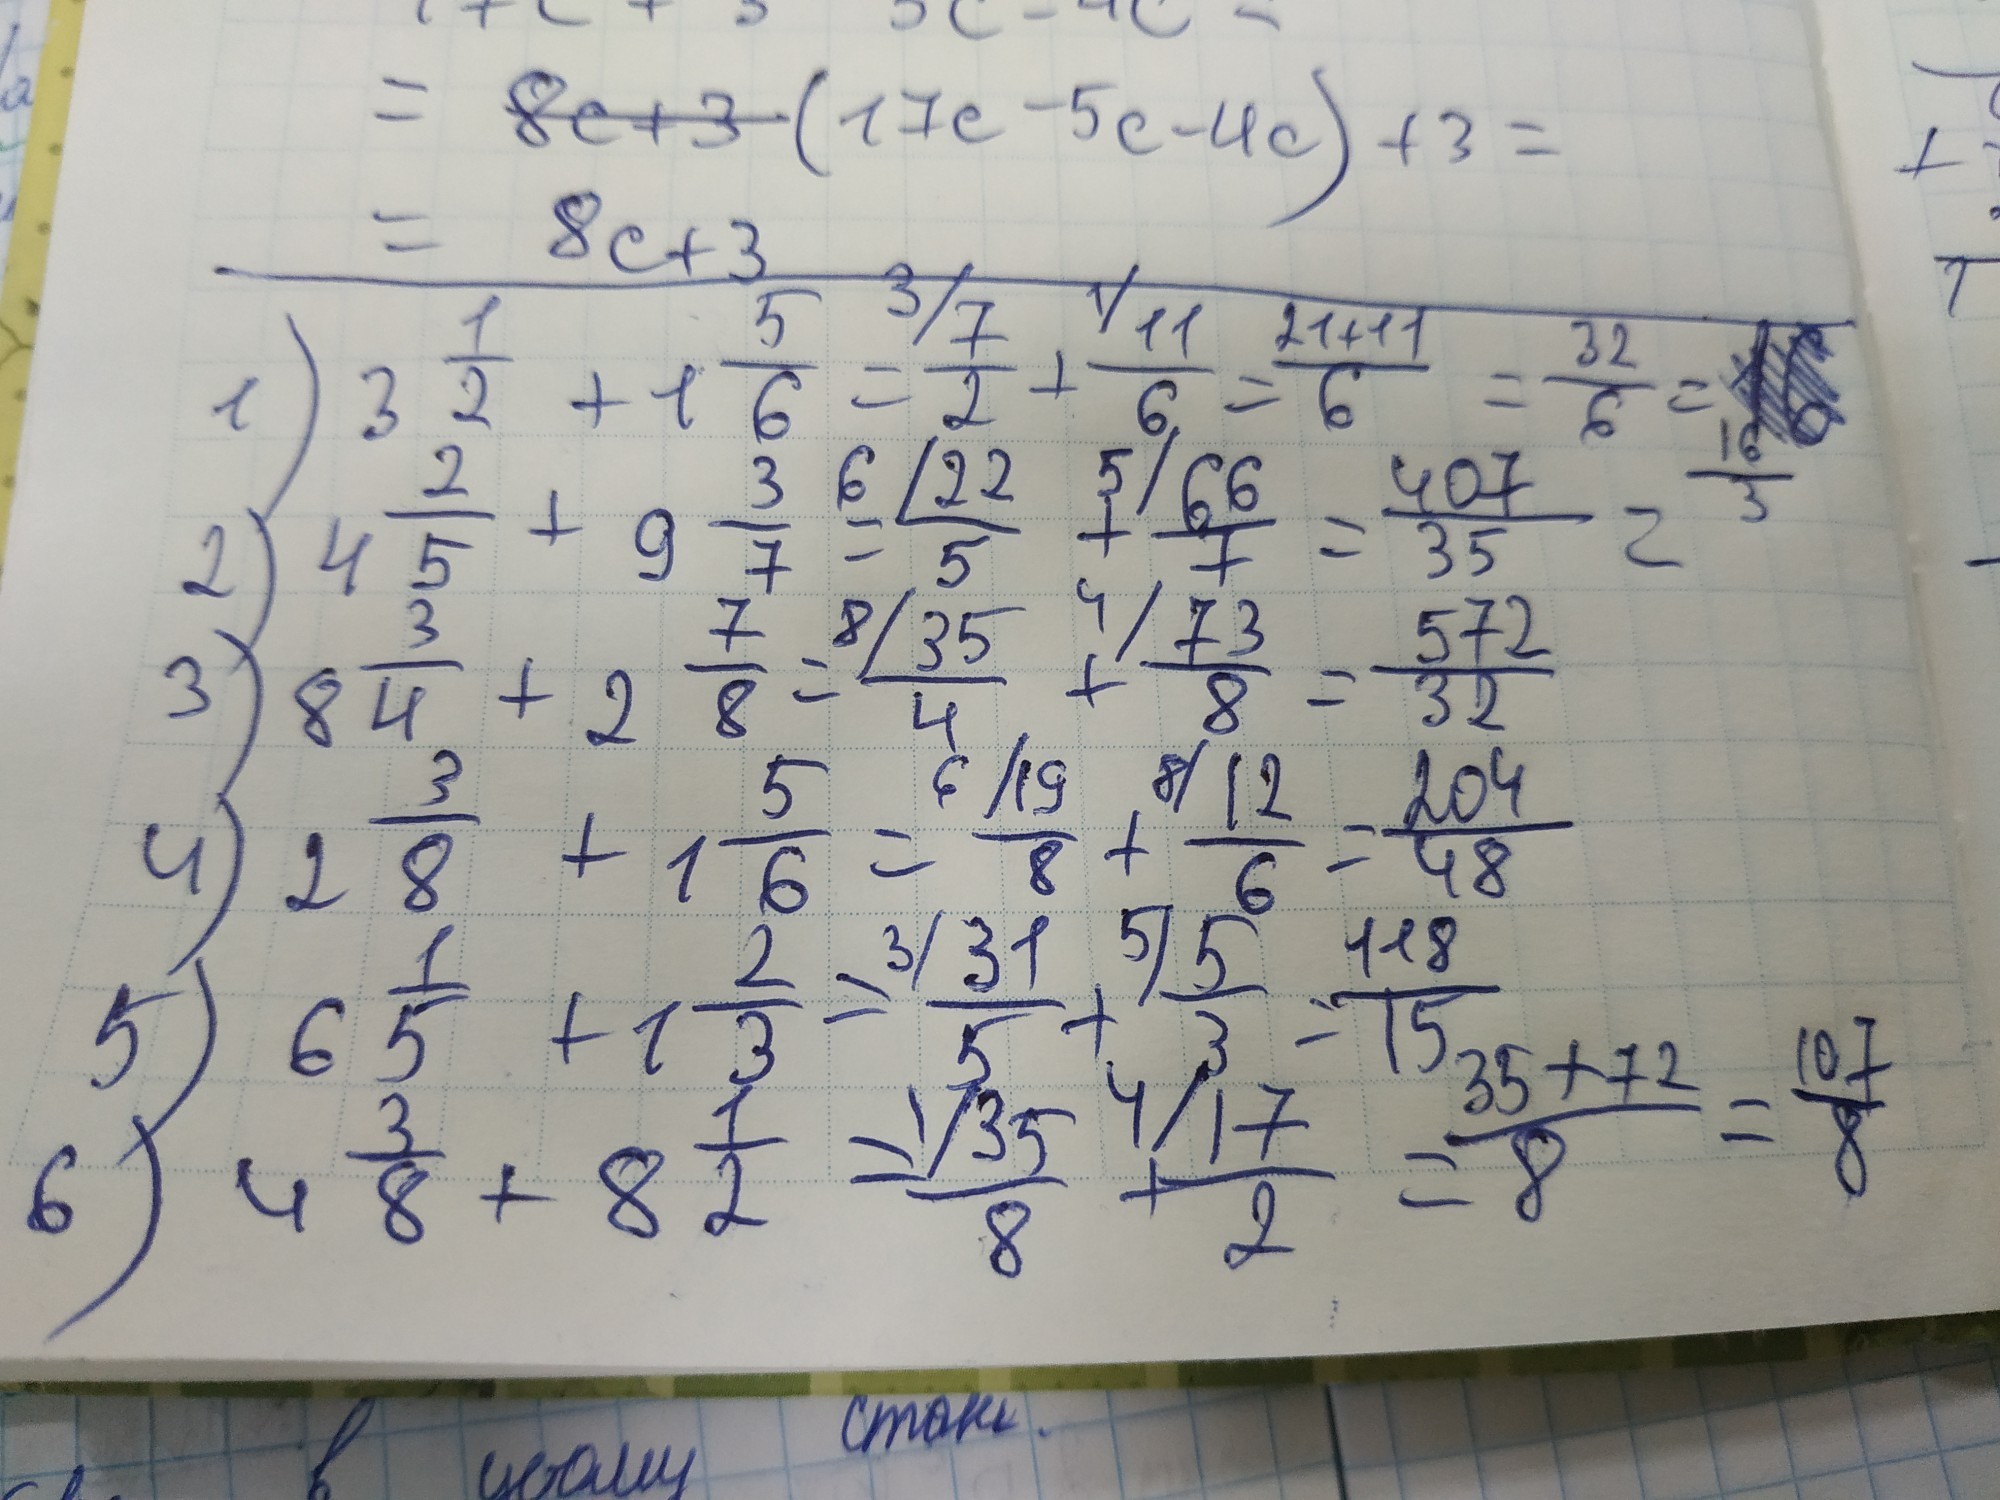 = 8c+3 (17c -5c-4c) +3 =
= 8c+3
1) 3 1/2 + 1 5/6 = 3/ 7/2 + 1/ 11/6 = 21+11/6 = 32/6 = 16/3
2) 4 2/5 + 9 3/7 = 6/ 22/5 + 5/ 66/7 = 407/35 =
3) 8 3/4 + 2 7/8 = 8/ 35/4 + 4/ 73/8 = 572/32
4) 2 3/8 + 1 5/6 = 6/ 19/8 + 8/ 12/6 = 204/48
5) 6 1/5 + 1 2/3 = 3/ 31/5 + 5/ 5/3 = 118/15
6) 4 3/8 + 8 1/2 = 1/ 35/8 + 4/ 17/2 = 35+72/8 = 107/8
в цьому стані.